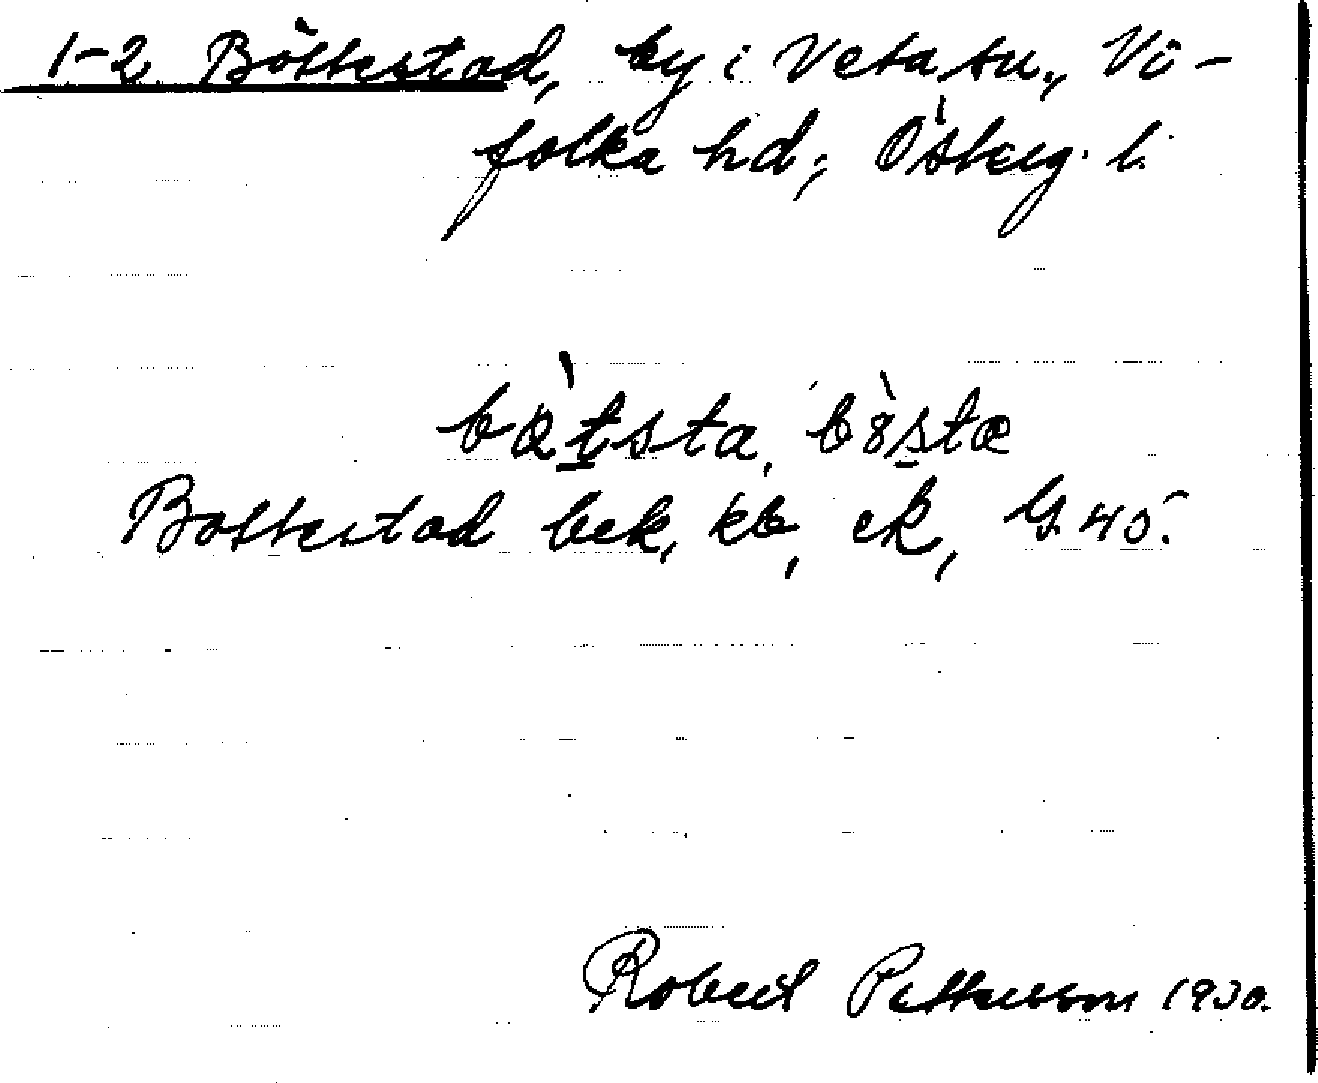 1-2 Böttestad, by i Veta sn., Vi-
folka hd, Österg. l.
bøtsta, bøsta
Bottestad bek, kb, ek, G. 45.
Robert Pettersson 1930.